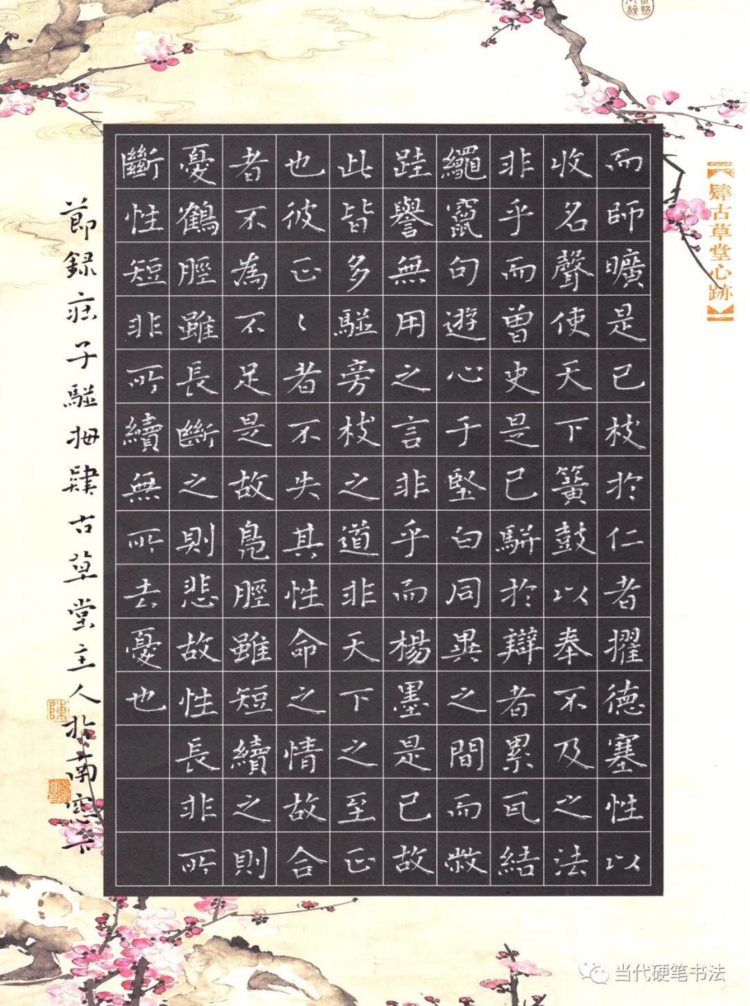 肄古草堂心跡
而師曠是已枝於仁者擢德塞性以
收名聲使天下簧鼓以奉不及之法
非乎而曾史是已駢於辯者累瓦結
繩竄句遊心于堅白同異之間而敝
跬譽無用之言非乎而楊墨是已故
此皆多駢旁枝之道非天下之至正
也彼正〻者不失其性命之情故合
者不為不足是故鳧脛雖短續之則
憂鶴脛雖長斷之則悲故性長非所
斷性短非所續無所去憂也
節錄莊子駢拇肄古草堂主人於南窗下
陳
当代硬笔书法